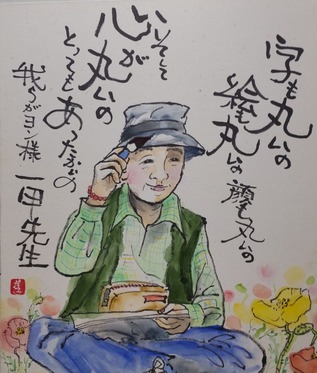 字も丸いの
絵も丸いの
顔も丸いの
そして
心が丸いの
とってもあったかいの
我らがヨン様
先生